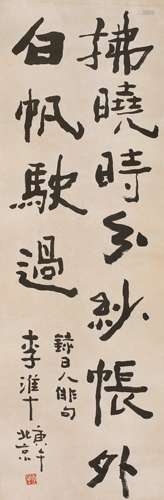 拂曉時分紗帳外
白帆駛過
錄日人俳句
李準
庚午
北京